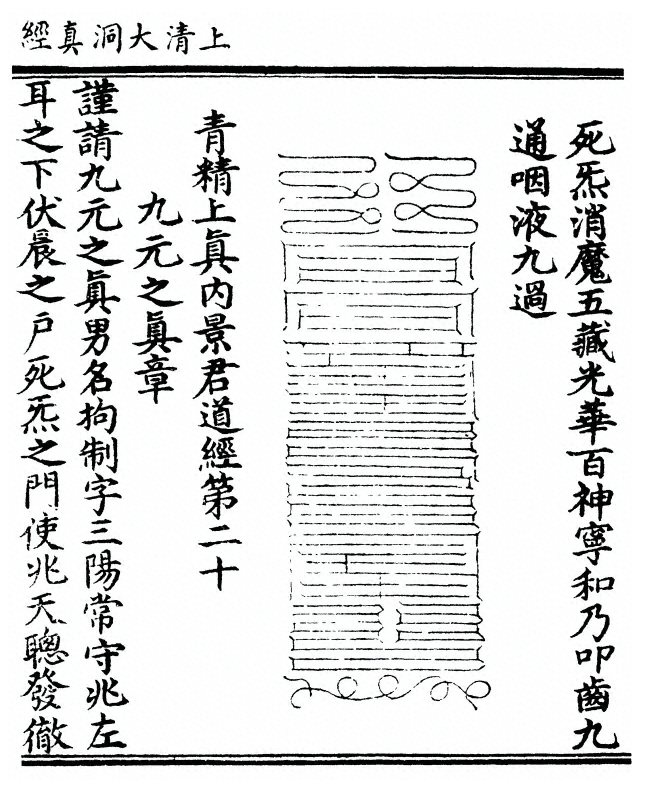 上清大洞真經
死炁消魔五藏光華百神寧和乃叩齒九
通咽液九過
青精上眞內景君道經第二十
九元之眞章
謹請九元之眞男名拘制字三陽常守兆左
耳之下伏晨之戶死炁之門使兆天聰發徹